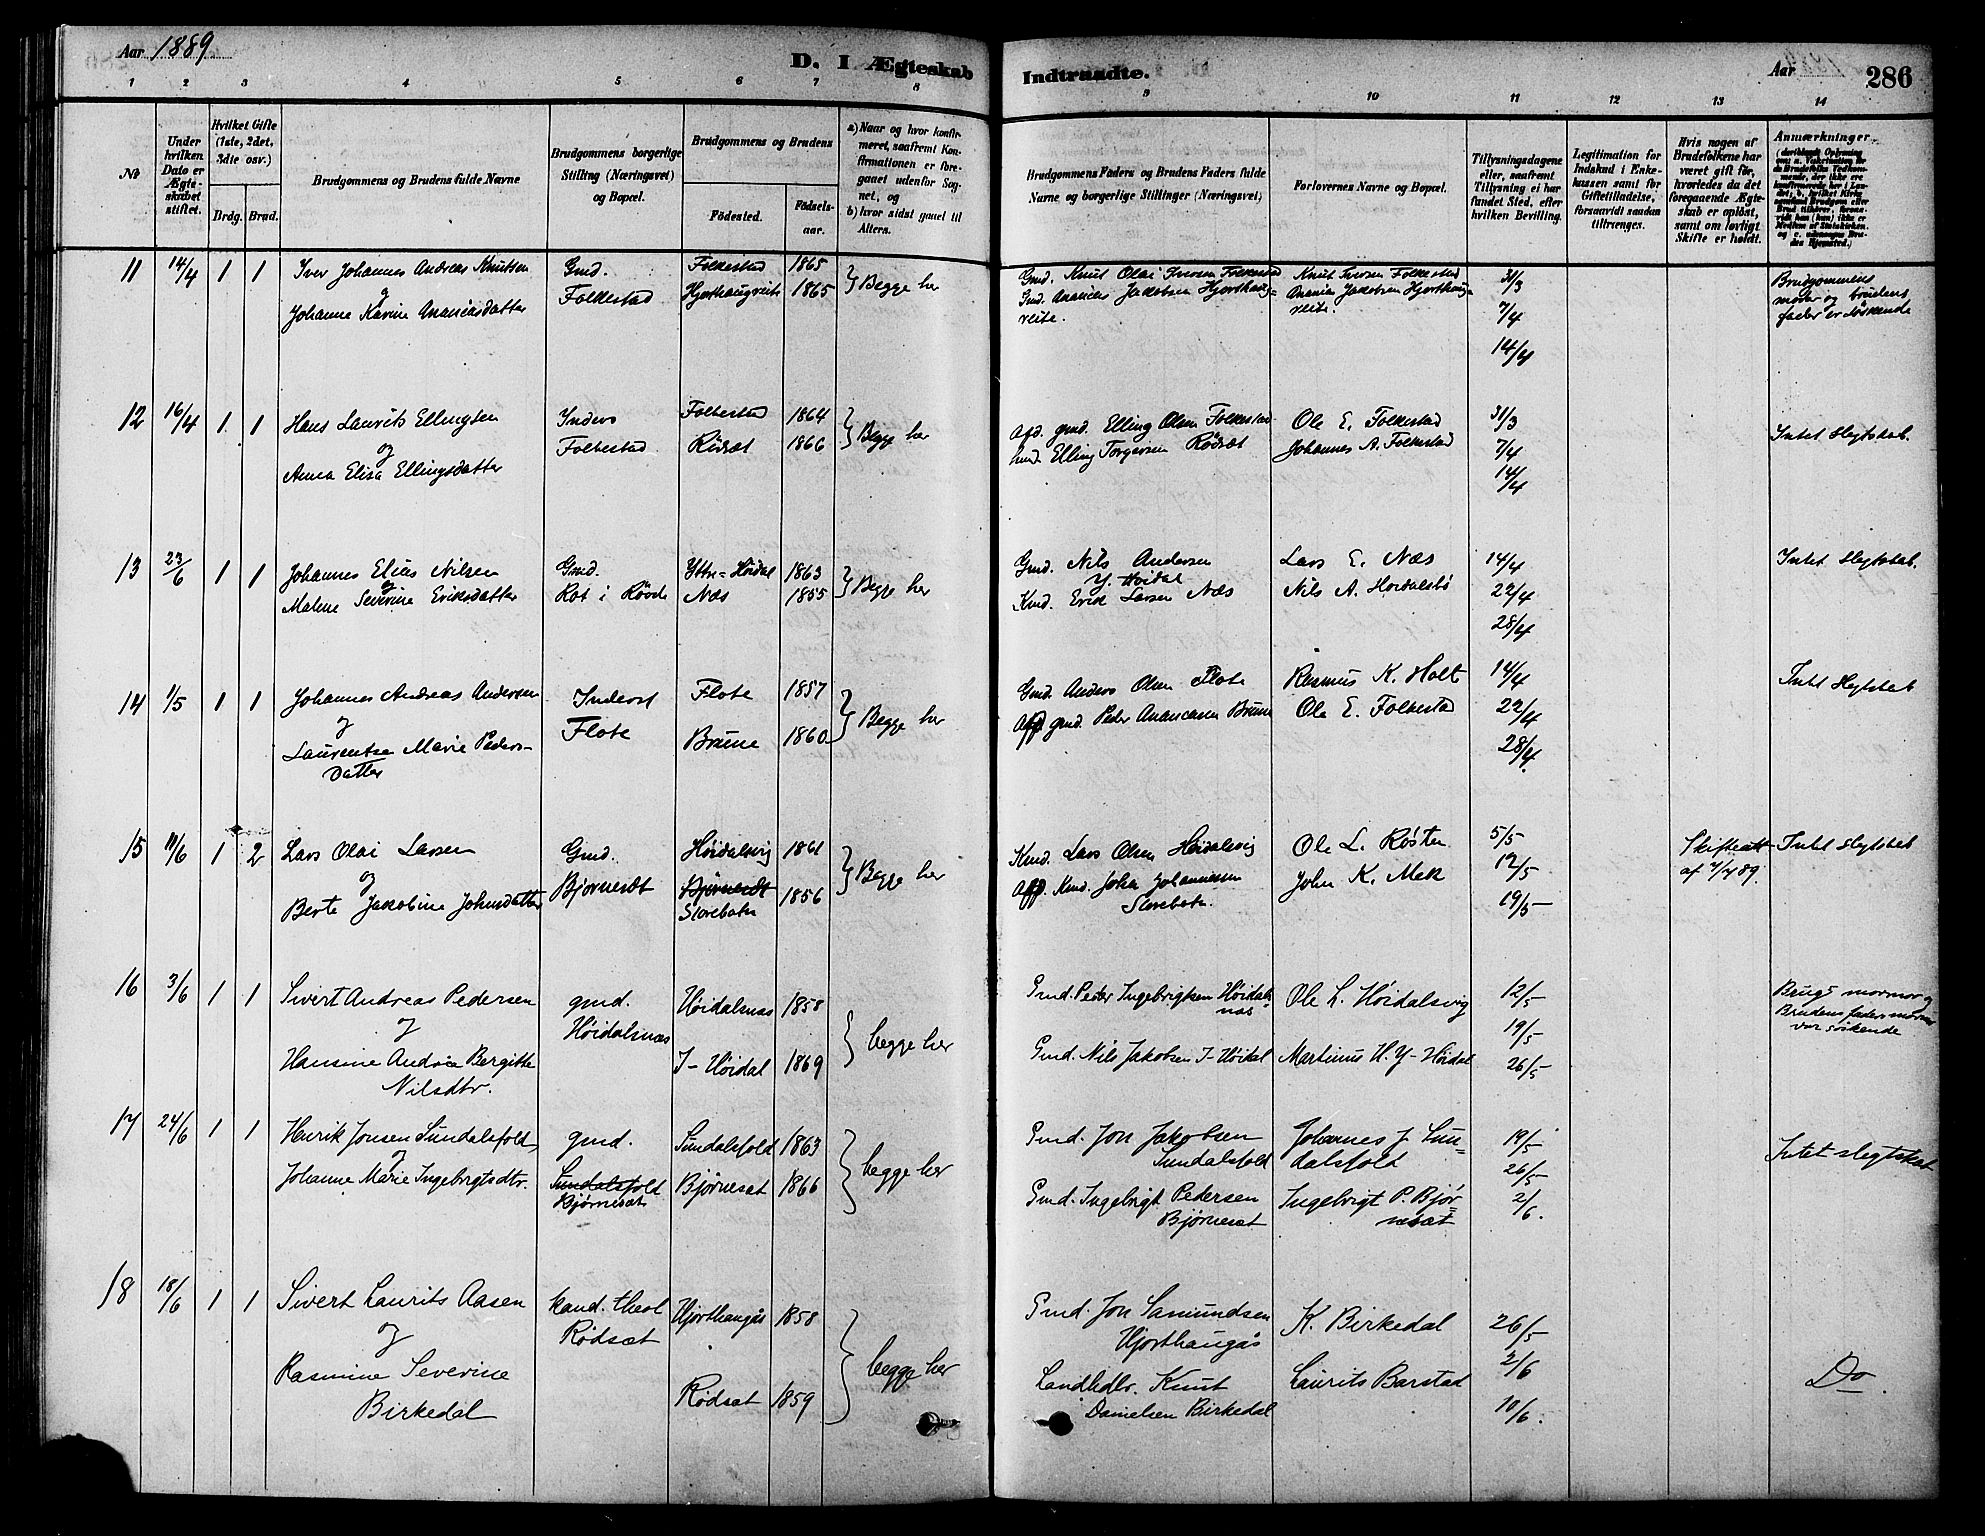 Aar 1889.
D. I Ægteskab
Indtraadte.
Aar 1889
286
1 2 3 4 5 6 7 8 9 10 11 12 13 14
No
Under hvilken Dato er Ægteskabet stiftet.
Hvilket Gifte (1ste, 2det, 3die osv.)
Brdg. Brud.
Brudgommens og Brudens fulde Navne
Brudgommens borgerlige Stilling (Næringsvei) og Bopæl.
Brudgommens og Brudens
Födested.
Födsels-aar.
a) Naar og hvor konfirmeret, saafremt Konfirmationen er foregaaet udenfor Sognet, og
b) hvor sidst gaaet til Alters.
Brudgommens Faders og Brudens Faders fulde Navne og borgerlige Stillinger (Næringsvei)
Forlovernes Navne og Bopæl.
Tillysningsdagene eller, saafremt Tillysning ei har fundet Sted, efter hvilken Bevilling.
Legitimation for Indskud i Enkekassen samt for Giftetilladelse, forsaavidt saadan tiltrænges.
Hvis nogen af Brudefolkene har været gift för, hvorledes da det foregaaende Ægteskab er oplöst, samt om lovligt Skifte er holdt.
Anmærkninger
11 14/4 1 1 Iver Johannes Andreas Knutsen Gmd. Folkestad 1865
og Folkestad Hjorthaugreite 1865 } Begge her
Johanne Karine Ananiasdatter
Gmd. Knut Olai Iversen Folkestad Knut Iversen Folkestad 31/3 Brudgommens
Gmd. Ananias Jakobsen Hjorthaug- Anania Jakobsen Hjorthaug- moder og brudens
reite. reite. 7/4 fader er söskende
14/4
12 16/4 1 1 Hans Laurits Ellingsen Inders Folkestad 1864
og Folkestad Rödsæt 1866 } Begge her
Anna Elisa Ellingsdatter
Afd. gmd. Elling Olsen Folkestad Ole E. Folkestad 31/3
Gmd. Elling Torgersen Rödsæt Johannes A. Folkestad 7/4 Intet slegtskab.
14/4
13 23/6 1 1 Johannes Elias Nilsen Gmd. Yttre-Höidal 1863
og Rot i Rövde Næs 1855 } Begge her
Malene Severine Eriksdatter
Gmd. Nils Andersen Lars E. Næs 14/4 Intet slegtskab.
Y. Höidal
Kmd. Erik Larsen Næs Nils A. Höidalsbö 22/4
28/4
14 1/5 1 1 Johannes Andreas Andersen Inderst Flote 1857
og Flote Brune 1860 } Begge her
Laurentse Marie Peders-
datter
Gmd. Anders Olsen Flote Rasmus K. Holt 14/4 Intet slegtskab
Afd. gmd. Peder Ananiassen Brune Ole E. Folkestad 22/4
28/4
15 11/6 1 2 Lars Olai Larsen Gmd. Höidalsvig 1861
og Bjørnesæt Bjørnesæt 1856 } Begge her
Berte Jakobine Johnsdatter Storebotn
Kmd. Lars Olsen Höidalsvig Ole L. Røsten 5/5 Skifteatt Intet slegtskab
Afd. Kmd. John Johannessen John K. Mek 12/5 af 4/4 89.
Storebotn. 19/5
16 3/6 1 1 Sivert Andreas Pedersen gmd. Høidalsnæs 1858
og Høidalsnæs } begge her
Hansine Andréa Bergitte I-Høidal 1869
Nilsdtr.
Gmd. Peder Ingebrigtsen Høidals- Ole L. Høidalsvig 12/5 Brugs mormor og
næs 19/5 Brudens faders mormor
var søskende
Gmd. Nils Jakobsen I-Høidal Martinus H. Y-Høidal 26/5
17 24/6 1 1 Henrik Jonsen Sundalsfold, gmd. Sundalsfold 1863
og } begge her
Johanne Marie Ingebrigtsdtr. Sundalsfold Bjørnesæt 1866
Bjørnesæt
Gmd. Jon Jakobsen Johannes J. Sun- 19/5
Sundalsfold dalsfold 26/5 Intet slegtskab
Gmd. Ingebrigt Pedersen Ingebrigt P. Bjør- 2/6.
Bjørnesæt nesæt
18 18/6 1 1 Sivert Laurits Aasen kand. theol Hjorthaugås 1858
og Rødsæt } begge her
Rasmine Severine
Birkedal Rødsæt 1859
Gmd. Jon Samundsen K. Birkedal 26/5
Hjorthaugås
Landhdlr. Knut Laurits Barstad 2/6 Do
Danielsen Birkedal 10/6.